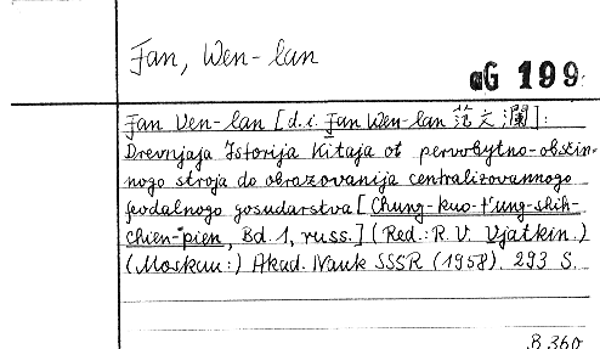 Fan, Wen-lan
aG 199
Fan Ven-lan [d.i. Fan Wen-lan 范文瀾]:
Drevnjaja Istorija Kitaja ot pervobytno-obščin-
nogo stroja do obrazovanija centralizovannogo
feodalnogo gosudarstva [Chung-kuo-t'ung-shih-
chien-pien, Bd. 1, russ.] (Red.: R. V. Vjatkin.)
(Moskau:) Akad. Nauk SSSR (1958). 293 S.
8 360